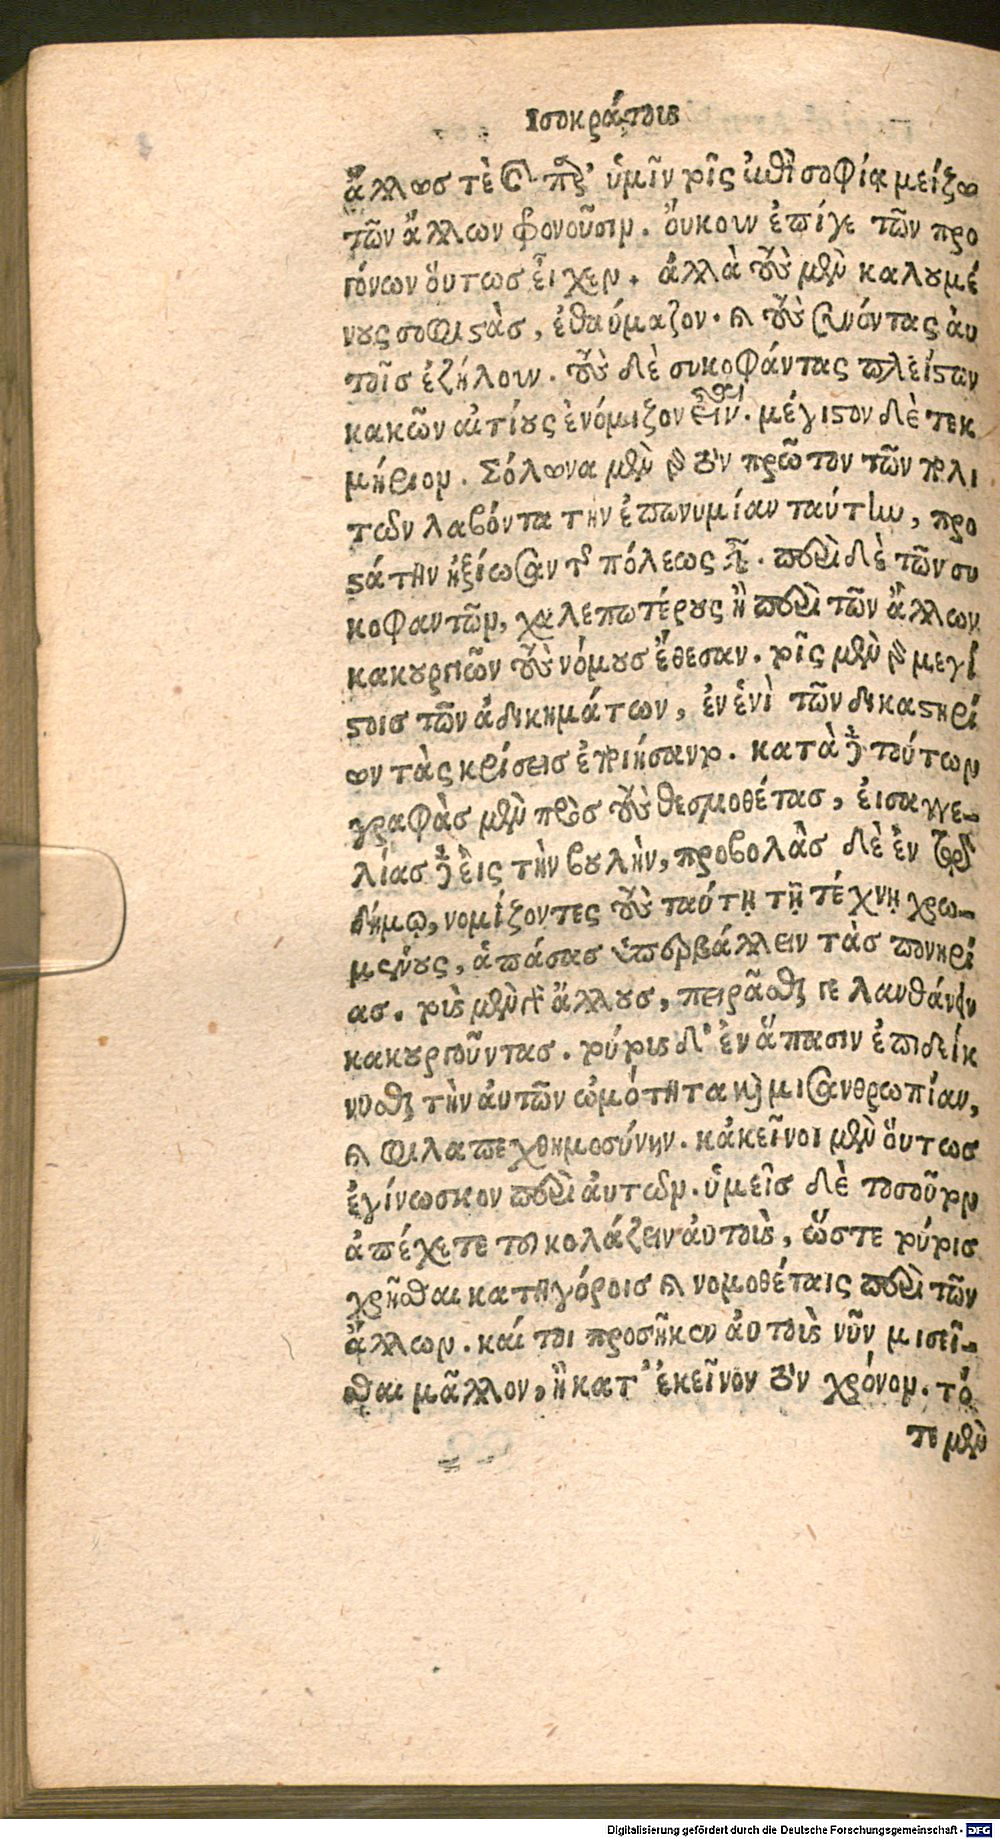 Ισοκράτους
ἄλλως τὲ καὶ παρ' ὑμῖν τοῖς ἐπὶ σοφίᾳ μεῖζω
τῶν ἄλλων φρονοῦσιν. ὄυκουν ἐπίγε τῶν προ
γόνων ὅυτωσ εἶχεν. ἀλλὰ τοὺς μὲν καλουμέ
νους σοφιστὰσ, ἐθαύμαζον. καὶ τοὺς συνόντας ἀυ
τοῖσ ἐζήλουν. τοὺς δὲ συκοφάντας πλείστων
κακῶν αἰτίους ἐνόμιζον εἶναι. μέγιστον δὲ τεκ
μήριον. Σόλωνα μὲν γὰρ τὸν πρῶτον τῶν πολι
τῶν λαβόντα τὴν ἐπωνυμίαν ταύτην, προ
στάτην ἠξίωσαν τῆς πόλεως εἶναι. περὶ δὲ τῶν συ
κοφαντῶν, χαλεπωτέρους ἢ περὶ τῶν ἄλλων
κακουργιῶν τοὺς νόμουσ ἔθεσαν. τοῖς μὲν γὰρ μεγί
στοισ τῶν ἀδικημάτων, ἐν ἑνὶ τῶν δικαστηρί
ων τὰς κρίσεισ ἐποιήσαντο. κατὰ δὲ τούτων
γραφὰσ μὲν πρὸσ τοὺς θεσμοθέτασ, ἐισαγγε-
λίασ δὲ ἐις τὴν βουλὴν, προβολὰσ δὲ ἐν τῷ
δήμῳ, νομίζοντες τοὺς ταύτῃ τῇ τέχνῃ χρω-
μένους, ἁπάσασ ὑπερβάλλειν τὰσ πονηρί
ασ. τοὺς μὲν γὰρ ἄλλουσ, πειρᾶσθαι γε λανθάνειν
κακουργοῦντασ. τούτους δ' ἐν ἅπασιν ἐπιδείκ
νυσθαι τὴν ἁυτῶν ὠμότητα καὶ μισανθρωπίαν,
καὶ φιλαπεχθημοσύνην. κἀκεῖνοι μὲν ὅυτωσ
ἐγίνωσκον περὶ ἀυτῶν. ὑμεῖσ δὲ τοσοῦτον
ἀπέχετε τοῦ κολάζειν ἀυτοὺς, ὥστε τούτοισ
χρῆσθαι κατηγόροισ καὶ νομοθέταις περὶ τῶν
ἄλλων. καί τοι προσῆκεν ἀυτοὺς νῦν μισεῖ-
σθαι μᾶλλον, ἢ κατ' ἐκεῖνον τὸν χρόνον. τό
τε μὲν
Digitalisierung gefördert durch die Deutsche Forschungsgemeinschaft - DFG